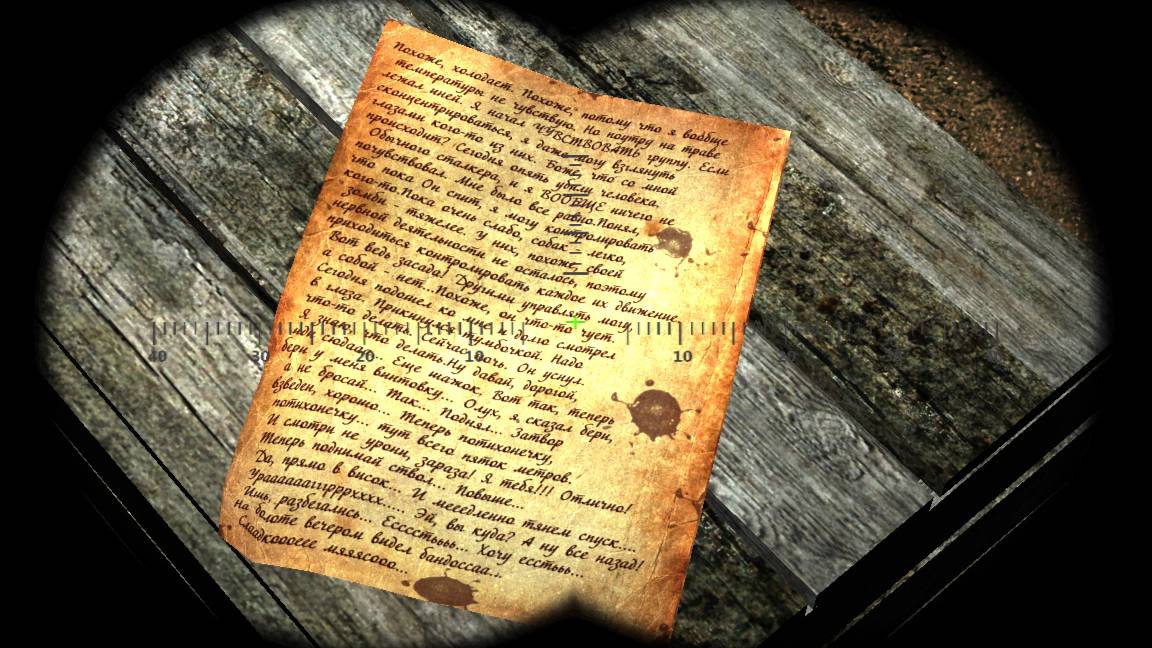 Похоже, холодает. Похоже, потому что я вообще
температуры не чувствую. Но поутру на траве
лежал иней. Я начал ЧУВСТВОВАТЬ группу. Если
сконцентрироваться, я даже могу взглянуть
глазами кого-то из них. Боже, что со мной
происходит? Сегодня опять убил человека.
Обычного сталкера, и я ВООБЩЕ ничего не
почувствовал. Мне было все равно.Понял,
что пока Он спит, я могу контролировать
кого-то.Пока очень слабо, собак - легко,
зомби - тяжелее, у них, похоже, своей
нервной деятельности не осталось, поэтому
приходиться контролировать каждое их движение.
Вот ведь засада! Другими управлять могу,
а собой - нет. Похоже, он что-то чует.
Сегодня подошел ко мне, долго смотрел
в глаза. Прикинулся тумбочкой. Надо
что-то делать. Сейчас ночь. Он уснул.
Я знаю, что делать.Ну давай, дорогой,
сюдаа... Еще шажок, Вот так, теперь
бери у меня винтовку... Олух, я, сказал бери,
а не бросай... Так... Поднял... Затвор
взведен, хорошо... Теперь потихонечку,
потихонечку... тут всего пяток метров.
И смотри не урони, зараза! Я тебя!!! Отлично!
Теперь поднимай ствол... Повыше...
Да, прямо в висок... И мееедленно тянем спуск....
Ураааааагггррррхххх..... Эй, вы куда? А ну все назад!
Ишь, разбегались... Ессстььь... Хочу есстььь...
На болоте вечером видел бандоссаа...
Слаадкооoeee мяяясооо...